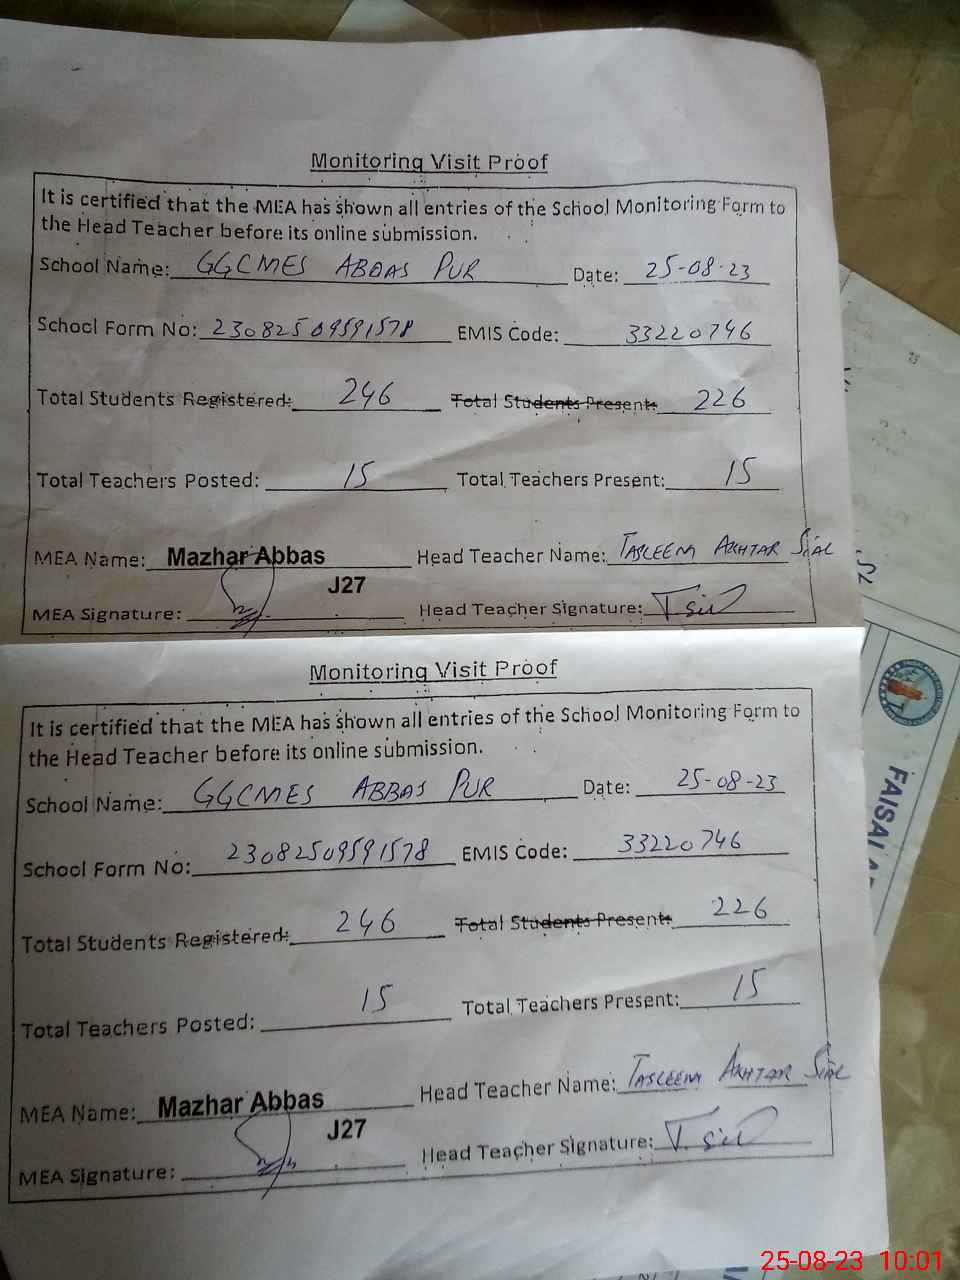 Monitoring Visit Proof
It is certified that the MEA has shown all entries of the School Monitoring Form to
the Head Teacher before its online submission.
School Name: GGCMES ABBAS PUR Date: 25-08-23
School Form No: 23082509591578 EMIS Code: 33220746
Total Students Registered: 246 Total Students Present: 226
Total Teachers Posted: 15 Total Teachers Present: 15
MEA Name: Mazhar Abbas Head Teacher Name: TASLEEM AKHTAR SIAL
J27
MEA Signature: Head Teacher Signature:
Monitoring Visit Proof
It is certified that the MEA has shown all entries of the School Monitoring Form to
the Head Teacher before its online submission.
School Name: GGCMES ABBAS PUR Date: 25-08-23
School Form No: 23082509591578 EMIS Code: 33220746
Total Students Registered: 246 Total Students Present: 226
Total Teachers Posted: 15 Total Teachers Present: 15
MEA Name: Mazhar Abbas Head Teacher Name: TASLEEM AKHTAR SIAL
J27
MEA Signature: Head Teacher Signature:
25-08-23 10:01